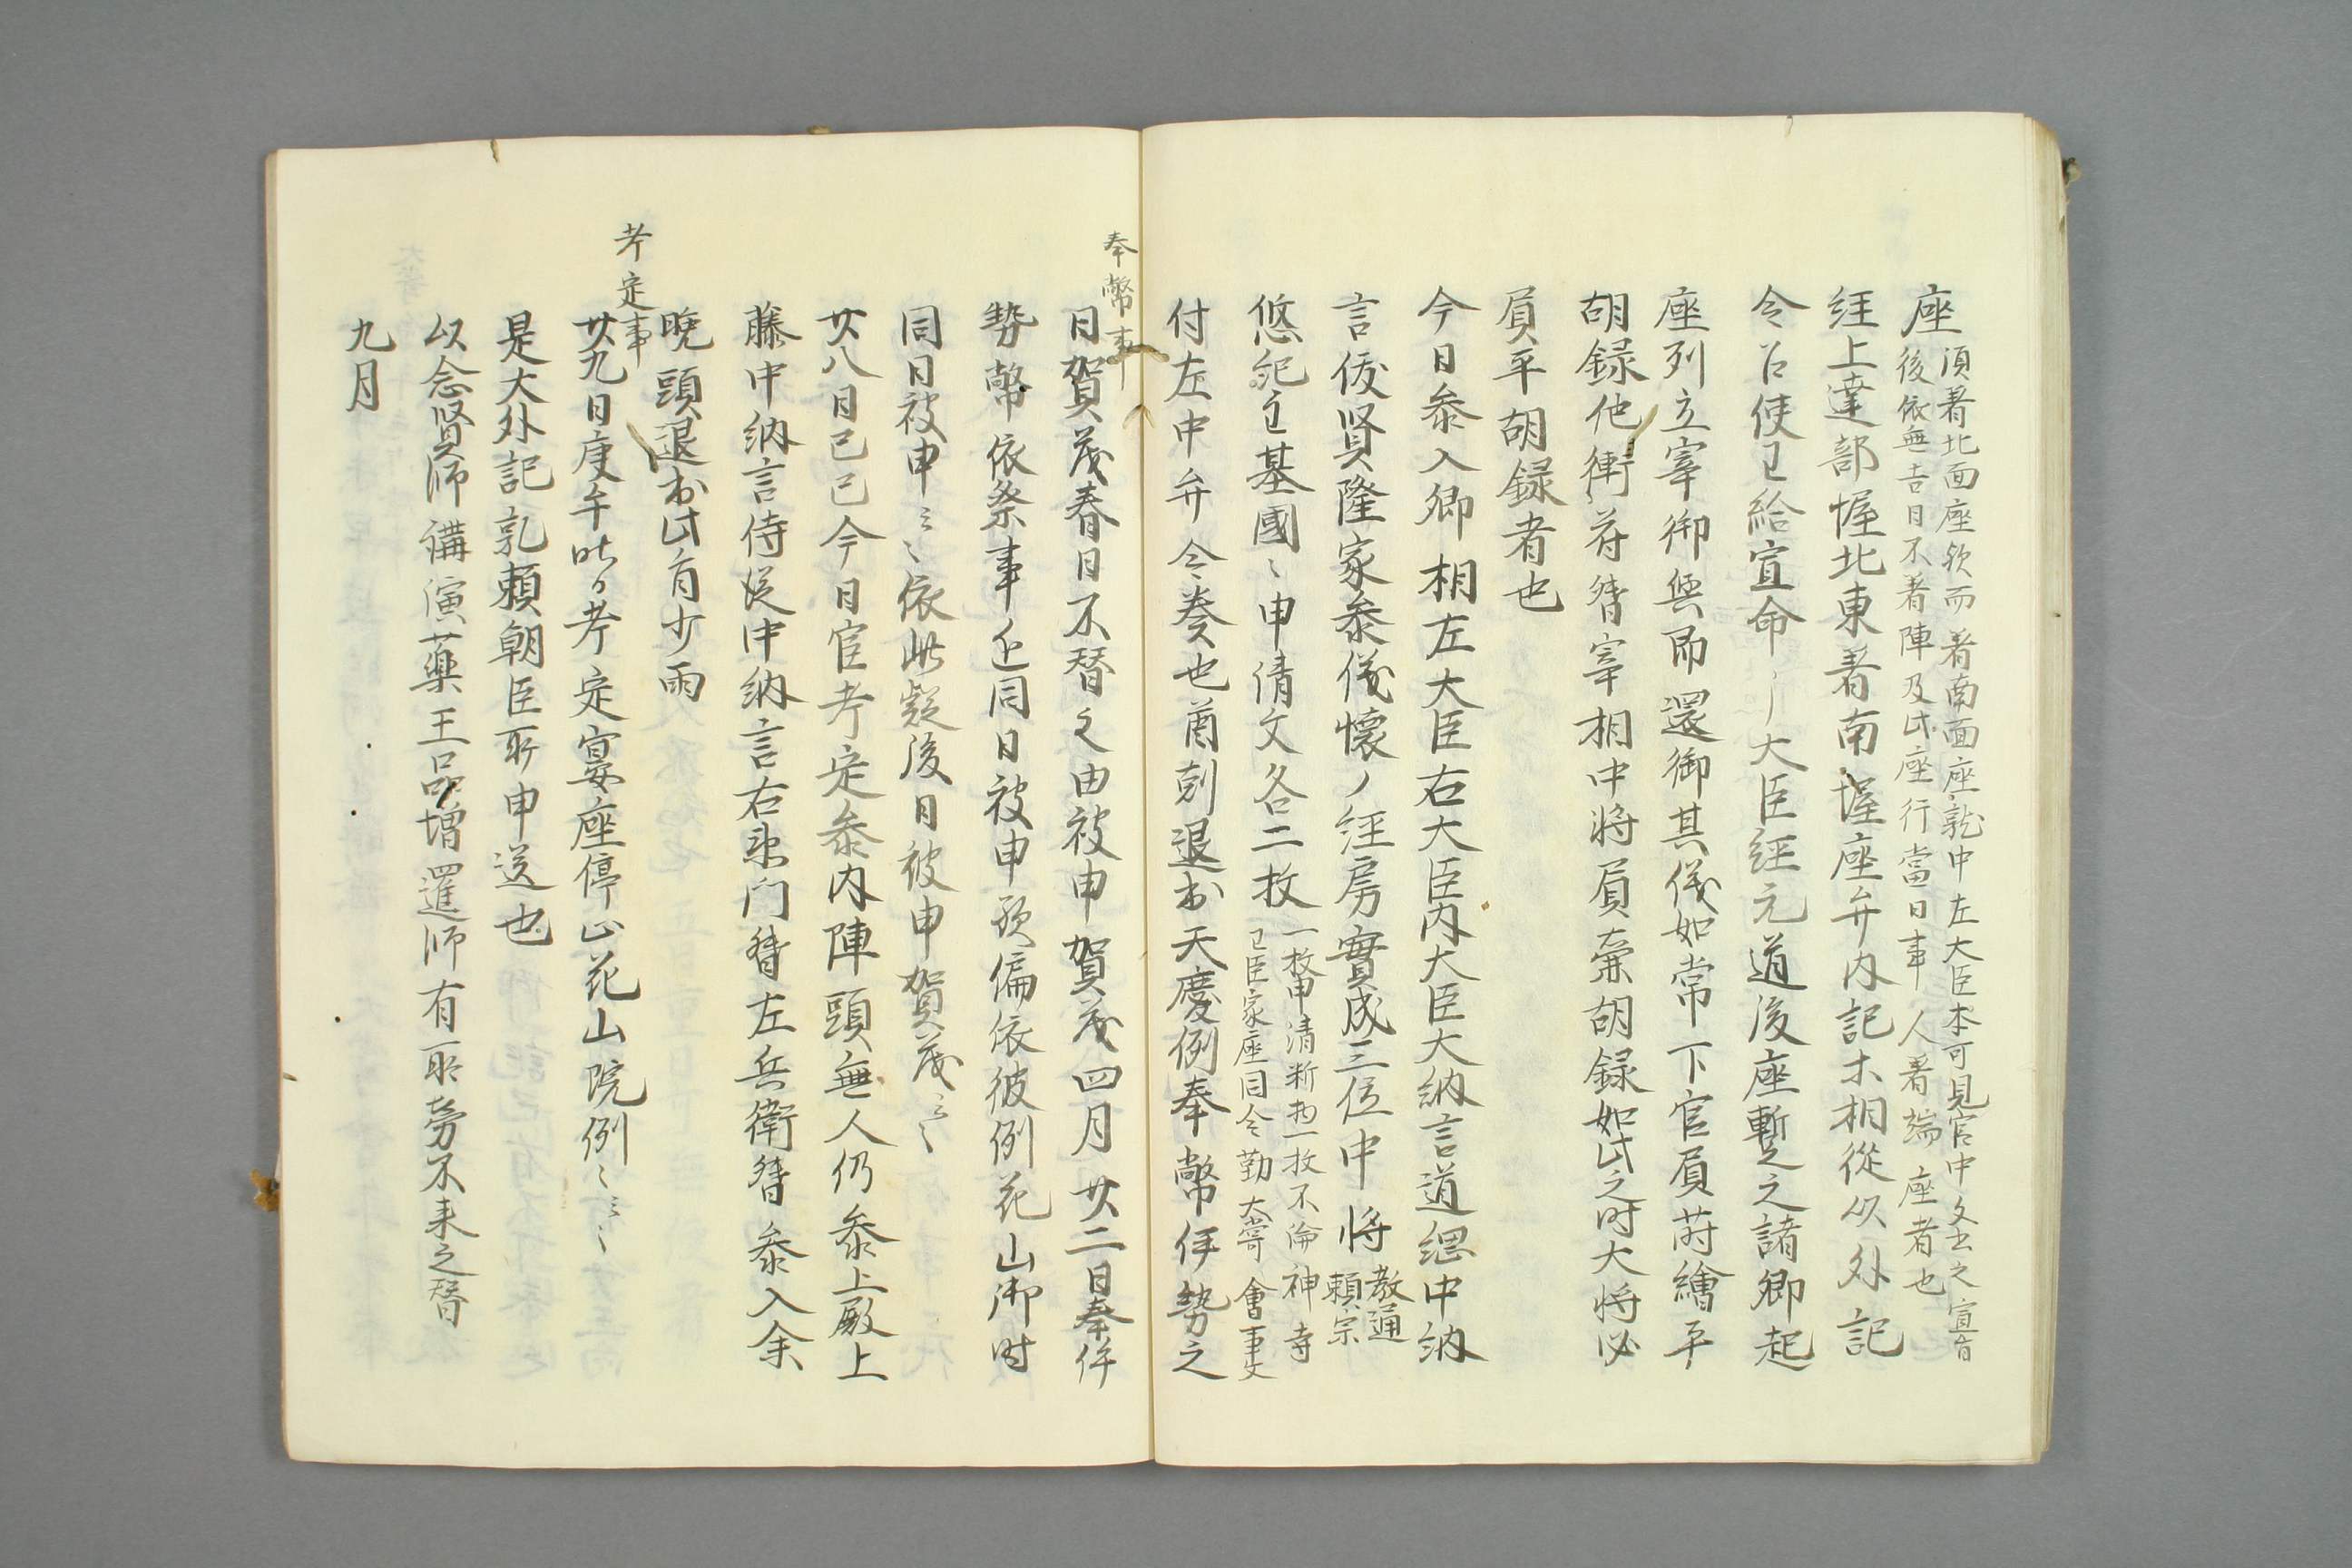 座須著北面座欤而著南面座乾中左大臣本可見官中之宣旨
後依無吉日不著陣及此座行當日事人著端座者也
経上達部幄北東著南幄座弁内記木相從以外記
令召使已給宣命〻大臣経元道後座暫之諸卿起
座列立宰御輿即還御其儀如常下官負蒔繪平
胡録他衛府督宰相中将負壺胡録如此之時大将必
負平胡録者也
今日叅入卿相左大臣右大臣内大臣大納言道綱中納
言俊賢隆家叅儀懐ノ経房實成三位中将教通頼宗
悠紀主基國〻申請文各二枚一枚申清断物一枚不論神寺
王臣家庄田令勤大嘗會事文
付左中弁令奏也酉剋退出天慶例奉幣伊勢之
奉幣事
日賀茂春日不替之由被申賀茂四月廿二日奉伊
勢幣依祭事近同日被申預偏依彼例花山御時
同日被申云〻依此疑後日被申賀茂云〻
廿八日己巳今日官考定叅内陣頭無人仍叅上殿上
藤中納言侍従中納言右衛門督左兵衛督叅入余
晩頭退出此間少雨
考定事
廿九日庚午昨日考定宴座停止花山院例〻云〻
是大外記敦頼朝臣所申送也
以念賢師講演薬王品増暹師有所勞不来之替
九月